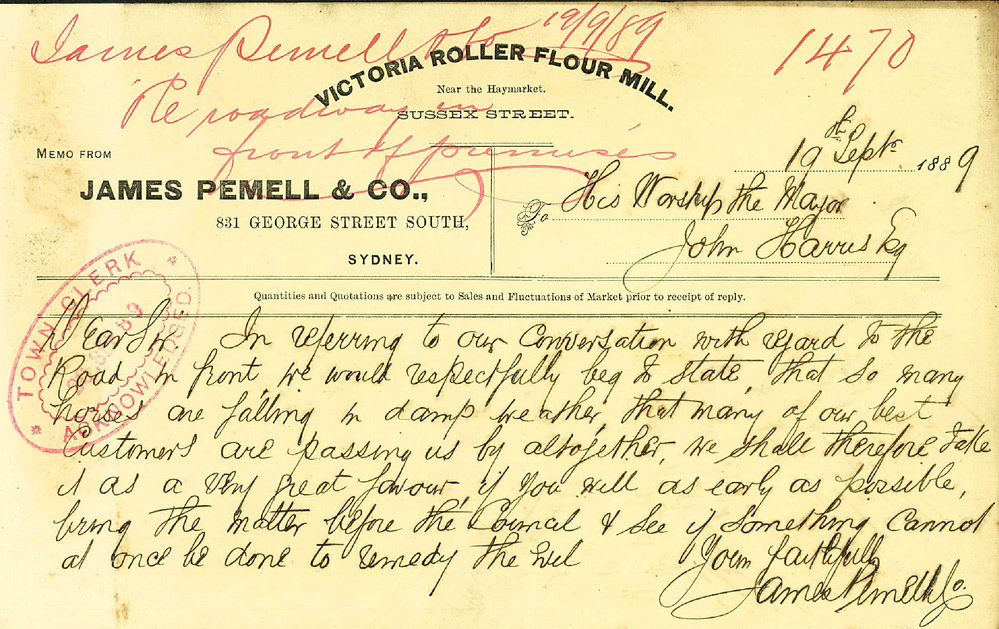 James Pemell & Co 19/9/89
1470
Re roadway in
front of premises
VICTORIA ROLLER FLOUR MILL.
Near the Haymarket.
SUSSEX STREET.
MEMO FROM
JAMES PEMELL & CO.,
831 GEORGE STREET SOUTH,
SYDNEY.
19th Septr 1889
To His Worship the Mayor
John Harris Esq
Quantities and Quotations are subject to Sales and Fluctuations of Market prior to receipt of reply.
TOWN CLERK
ACKNOWLEDGED.
Dear Sir In referring to our Conversation with regard to the
Road in front, we would respectfully beg to state, that so many
horses are falling in damp weather, that many of our best
customers are passing us by altogether, we shall therefore take
it as a very great favour, if you will as early as possible,
bring the matter before the Council & see if something cannot
at once be done to remedy the evil
Yours faithfully
James Pemell & Co.